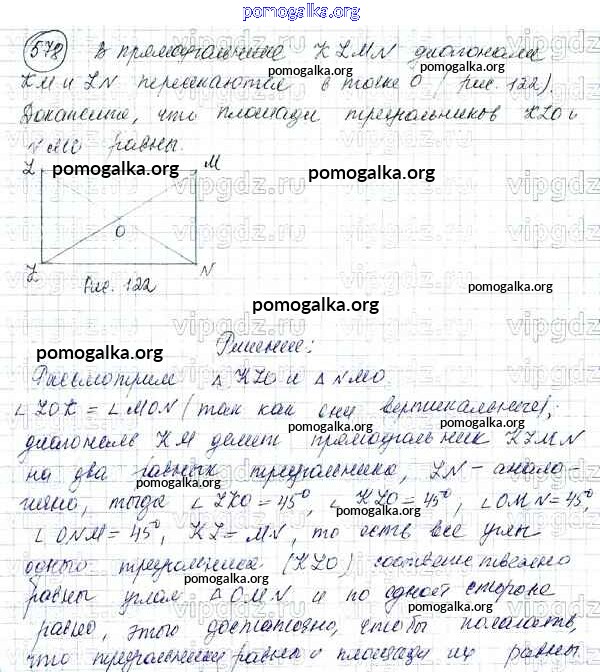 pomogalka.org
578 В прямоугольнике KLMN диагонали
pomogalka.org pomogalka.org
KM и LN пересекаются в точке O (рис. 122).
pomogalka.org
Докажите, что площади треугольников KLO и
NMO равны.
pomogalka.org M pomogalka.org
O
L N
Рис. 122
pomogalka.org
pomogalka.org
pomogalka.org
Решение:
Рассмотрим △ KLO и △ NMO.
pomogalka.org
∠ LOK = ∠ MON (так как они вертикальные),
pomogalka.org
диагональ KM делит прямоугольник KLMN
pomogalka.org
на два равных треугольника, LN - анало-
pomogalka.org
гично, тогда ∠ LKO = 45°, ∠ KLO = 45°, ∠ OMN = 45°,
pomogalka.org
∠ ONM = 45°, KL = MN, то есть все углы
одного треугольника (KLO) соответственно
pomogalka.org
равны углам △ OMN и по одной стороне
pomogalka.org
равно, этого достаточно, чтобы полагать,
pomogalka.org
что треугольники равны и площади их равны.
pomogalka.org
vipgdz.ru